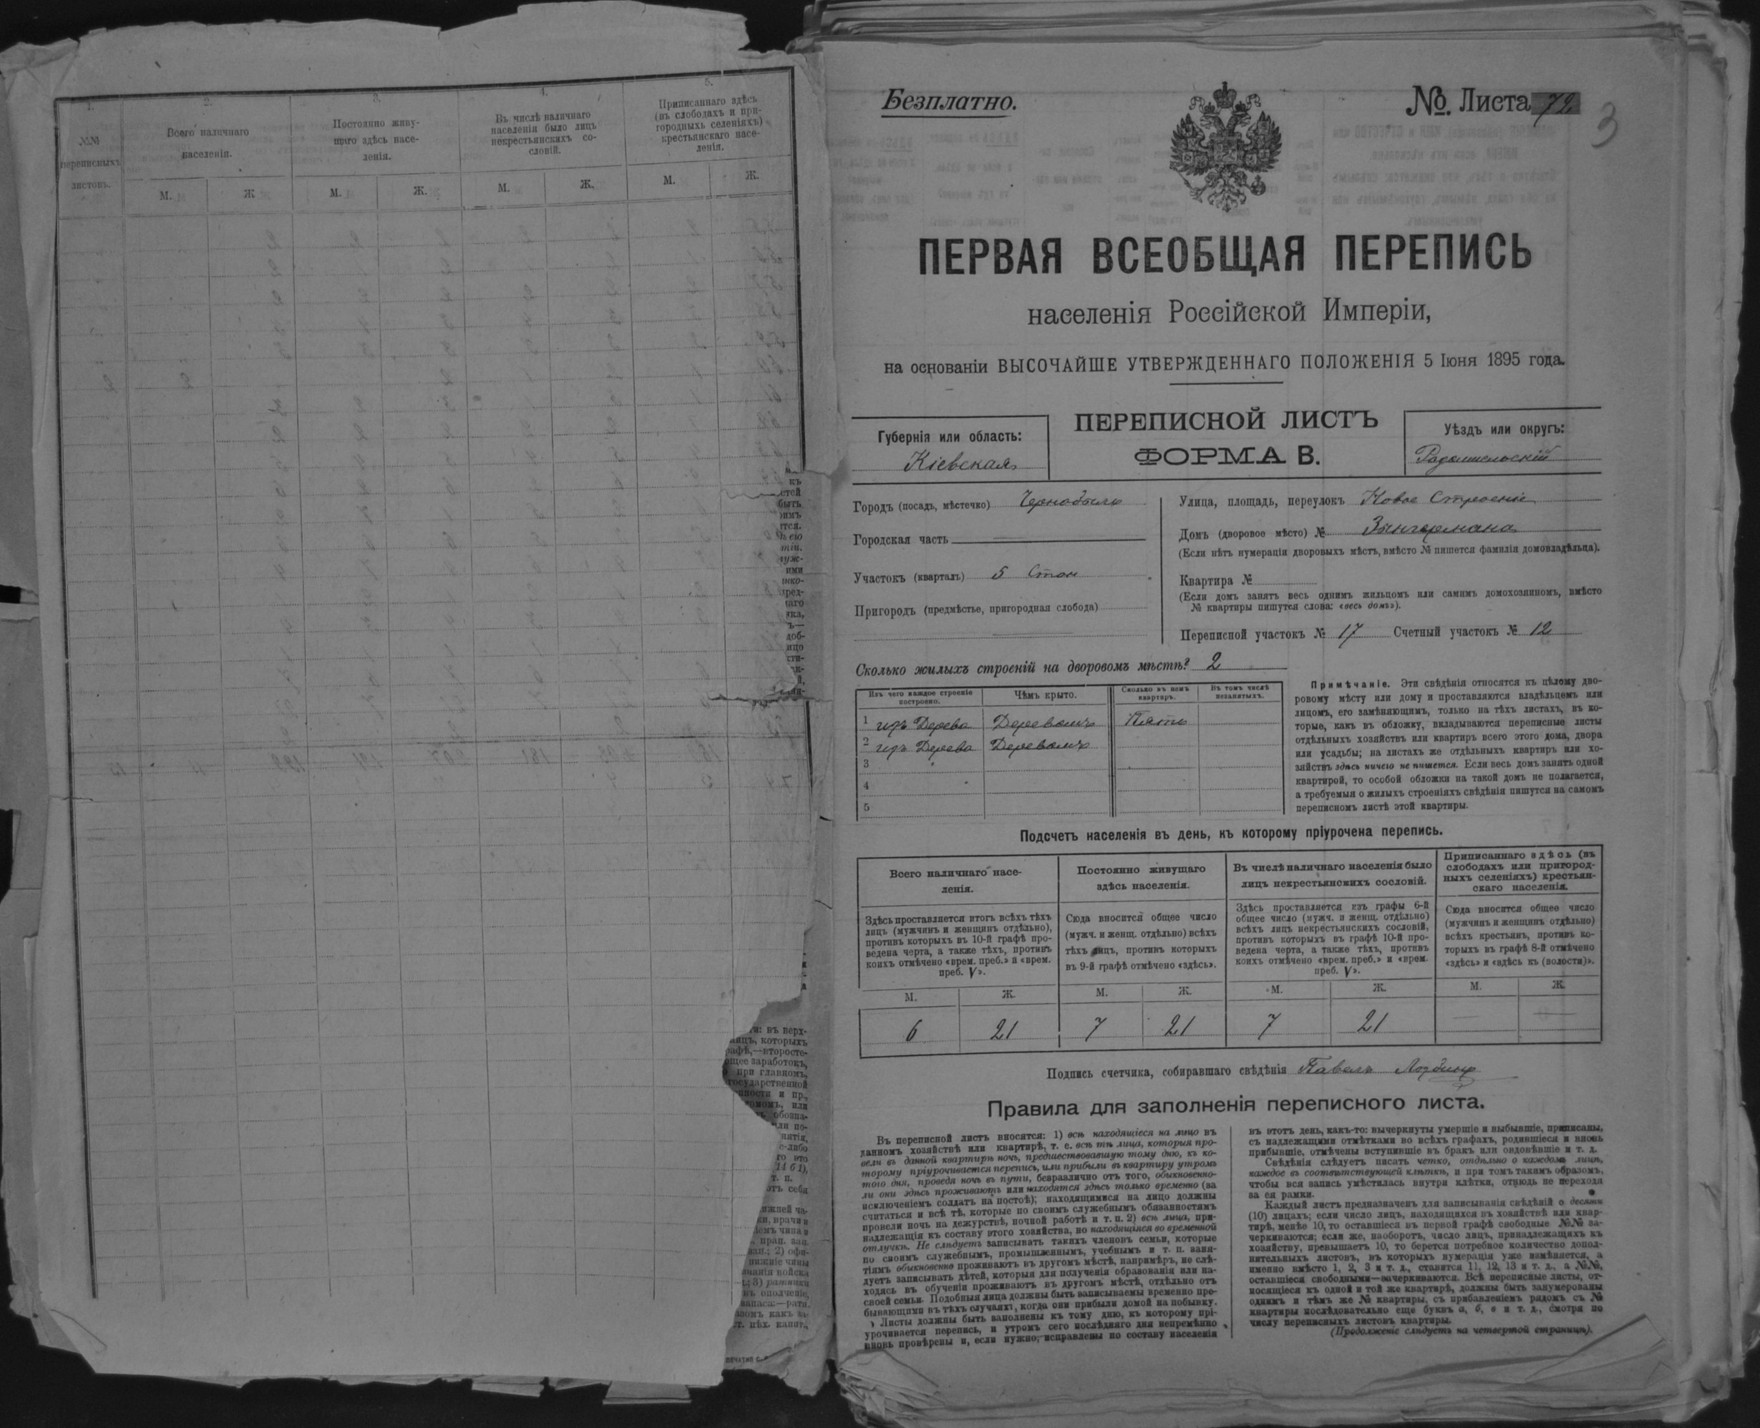 1.
2.
3.
4.
5.
№№
переписныхъ
листовъ.
Всего наличнаго
населенія.
Постоянно живу-
щаго здѣсь насе-
ленія.
Въ числѣ наличнаго
населенія было лицъ
некрестьянскихъ со-
словій.
Приписаннаго здѣсь
(въ слободахъ и при-
городныхъ селеніяхъ)
крестьянскаго насе-
ленія.
М. Ж М. Ж. М. Ж. М. Ж.
Безплатно.
№ Листа 72
3
ПЕРВАЯ ВСЕОБЩАЯ ПЕРЕПИСЬ
населенія Россійской Имперіи,
на основаніи ВЫСОЧАЙШЕ УТВЕРЖДЕННАГО ПОЛОЖЕНІЯ 5 Іюня 1895 года.
ПЕРЕПИСНОЙ ЛИСТЪ
ФОРМА В.
Губернія или область:
Кіевская
Уѣздъ или округъ:
Радомысльскій
Городъ (посадъ, мѣстечко) Чернобыль
Городская часть
Участокъ (кварталъ) 5 Стан
Пригородъ (предмѣстье, пригородная слобода)
Улица, площадь, переулокъ Новое Строеніе
Домъ (дворовое мѣсто) № Зингермана
(Если нѣтъ нумераціи дворовыхъ мѣстъ, вмѣсто № пишется фамилія домовладѣльца).
Квартира №
(Если домъ занятъ весь однимъ жильцомъ или самимъ домохозяиномъ, вмѣсто
№ квартиры пишутся слова: «весь домъ»).
Переписной участокъ № 17 Счетный участокъ № 12
Сколько жилыхъ строеній на дворовомъ мѣстѣ? 2
Изъ чего каждое строеніе
построено.
Чѣмъ крыто.
Сколько въ немъ
квартиръ.
Въ томъ числѣ
незанятыхъ.
1 изъ Дерева Деревомъ Пять
2 изъ Дерева Деревомъ
3
4
5
Примѣчаніе. Эти свѣдѣнія относятся къ цѣлому дво-
ровому мѣсту или дому и проставляются владѣльцемъ или
лицомъ, его замѣняющимъ, только на тѣхъ листахъ, въ ко-
торые, какъ въ обложку, вкладываются переписные листы
отдѣльныхъ хозяйствъ или квартиръ всего этого дома, двора
или усадьбы; на листахъ же отдѣльныхъ квартиръ или хо-
зяйствъ здѣсь ничего не пишется. Если весь домъ занятъ одной
квартирой, то особой обложки на такой домъ не полагается,
а требуемыя о жилыхъ строеніяхъ свѣдѣнія пишутся на самомъ
переписномъ листѣ этой квартиры.
Подсчетъ населенія въ день, къ которому пріурочена перепись.
Всего наличнаго насе-
ленія.
Постоянно живущаго
здѣсь населенія.
Въ числѣ наличнаго населенія было
лицъ некрестьянскихъ сословій.
Приписаннаго здѣсь (въ
слободахъ или пригород-
ныхъ селеніяхъ) крестьян-
скаго населенія.
Здѣсь проставляется итогъ всѣхъ тѣхъ
лицъ (мужчинъ и женщинъ отдѣльно),
противъ которыхъ въ 10-й графѣ про-
ведена черта, а также тѣхъ, противъ
коихъ отмѣчено «врем. преб.» и «врем.
преб. V».
Сюда вносится общее число
(мужч. и женщ. отдѣльно) всѣхъ
тѣхъ лицъ, противъ которыхъ
въ 9-й графѣ отмѣчено «здѣсь».
Здѣсь проставляется изъ графы 6-й
общее число (мужч. и женщ. отдѣльно)
всѣхъ лицъ некрестьянскихъ сословій,
противъ которыхъ въ графѣ 10-й про-
ведена черта, а также тѣхъ, противъ
коихъ отмѣчено «врем. преб.» и «врем.
преб. V».
Сюда вносится общее число
(мужчинъ и женщинъ отдѣльно)
всѣхъ крестьянъ, противъ ко-
торыхъ въ графѣ 8-й отмѣчено
«здѣсь» и «здѣсь къ (волости)».
М. Ж. М. Ж. М. Ж. М. Ж.
6 21 7 21 7 21 — —
Подпись счетчика, собиравшаго свѣдѣнія Павелъ
Правила для заполненія переписного листа.
Въ переписной листъ вносятся: 1) всѣ находящіеся на лицо въ
данномъ хозяйствѣ или квартирѣ, т. е. всѣ тѣ лица, которыя про-
вели въ данной квартирѣ ночь, предшествовавшую тому дню, къ ко-
торому пріурочивается перепись, или прибыли въ квартиру утромъ
того дня, проведя ночь въ пути, безразлично отъ того, обыкновенно-
ли они здѣсь проживаютъ или находятся здѣсь только временно (за
исключеніемъ солдатъ на постоѣ); находящимися на лицо должны
считаться и всѣ тѣ, которые по своимъ служебнымъ обязанностямъ
провели ночь на дежурствѣ, ночной работѣ и т. п. 2) всѣ лица, при-
надлежащія къ составу этого хозяйства, но находящіяся во временной
отлучкѣ. Не слѣдуетъ записывать такихъ членовъ семьи, которые
по своимъ служебнымъ, промышленнымъ, учебнымъ и т. п. заня-
тіямъ обыкновенно проживаютъ въ другомъ мѣстѣ, напримѣръ, не слѣ-
дуетъ записывать дѣтей, которыя для полученія образованія или на-
ходясь въ обученіи проживаютъ въ другомъ мѣстѣ, отдѣльно отъ
своей семьи. Подобныя лица должны быть записываемы временно пре-
бывающими въ тѣхъ случаяхъ, когда они прибыли домой на побывку.
Листы должны быть заполнены къ тому дню, къ которому прі-
урочивается перепись, и утромъ сего послѣдняго дня непремѣнно
вновь провѣрены и, если нужно, исправлены по составу населенія
въ этотъ день, какъ-то: вычеркнуты умершіе и выбывшіе, приписаны,
съ надлежащими отмѣтками во всѣхъ графахъ, родившіеся и вновь
прибывшіе, отмѣчены вступившіе въ бракъ или овдовѣвшіе и т. д.
Свѣдѣнія слѣдуетъ писать четко, отдѣльно о каждомъ лицѣ,
каждое въ соотвѣтствующей клѣткѣ, и при томъ такимъ образомъ,
чтобы вся запись умѣстилась внутри клѣтки, отнюдь не переходя
за ея рамки.
Каждый листъ предназначенъ для записыванія свѣдѣній о десяти
(10) лицахъ; если число лицъ, находящихся въ хозяйствѣ или квар-
тирѣ, менѣе 10, то оставшіеся въ первой графѣ свободные №№ за-
черкиваются; если же, наоборотъ, число лицъ, принадлежащихъ къ
хозяйству, превышаетъ 10, то берется потребное количество допол-
нительныхъ листовъ, въ которыхъ нумерація уже измѣняется, а
именно вмѣсто 1, 2, 3 и т. д., ставится 11, 12, 13 и т. д., а №№,
оставшіеся свободными—зачеркиваются. Всѣ переписные листы, от-
носящіеся къ одной и той же квартирѣ, должны быть занумерованы
однимъ и тѣмъ же № квартиры, съ прибавленіемъ рядомъ съ №
квартиры послѣдовательно еще буквъ а, б, в и т. д., смотря по
числу переписныхъ листовъ квартиры.
(Продолженіе слѣдуетъ на четвертой страницѣ).